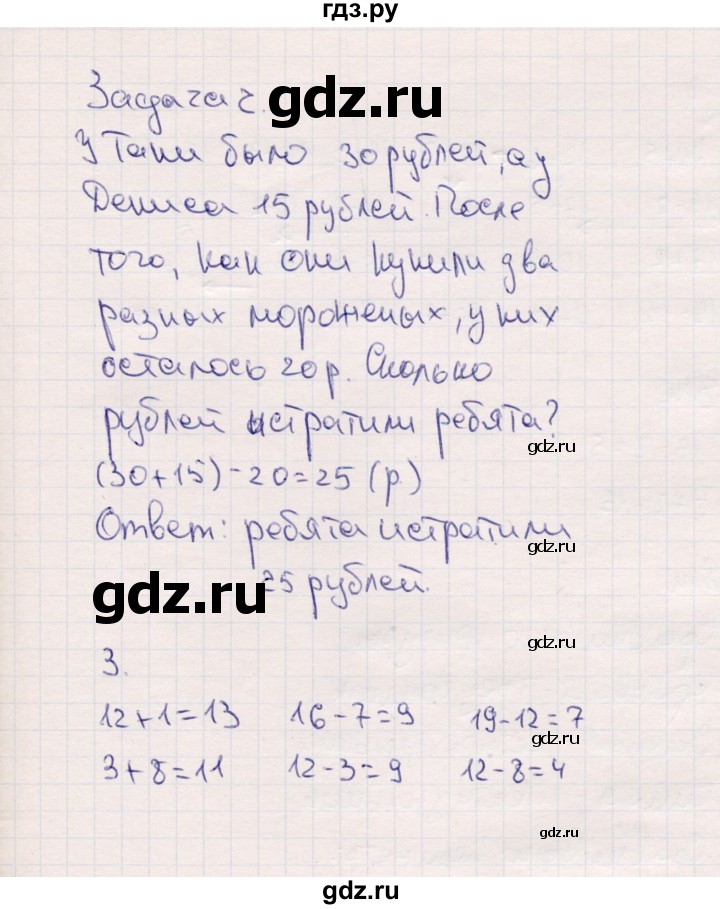 гдз.ру
Задача 2.
gdz.ru
У Тани было 30 рублей, а у
Дениса 15 рублей. После
того, как они купили два
разных мороженых, у них
осталось 20 р. Сколько
рублей истратили ребята?
gdz.ru
(30+15)-20=25 (р.)
Ответ: ребята истратили
gdz.ru
25 рублей.
gdz.ru
3.
gdz.ru
12+1=13 16-7=9 19-12=7
gdz.ru
3+8=11 12-3=9 12-8=4
gdz.ru
gdz.ru